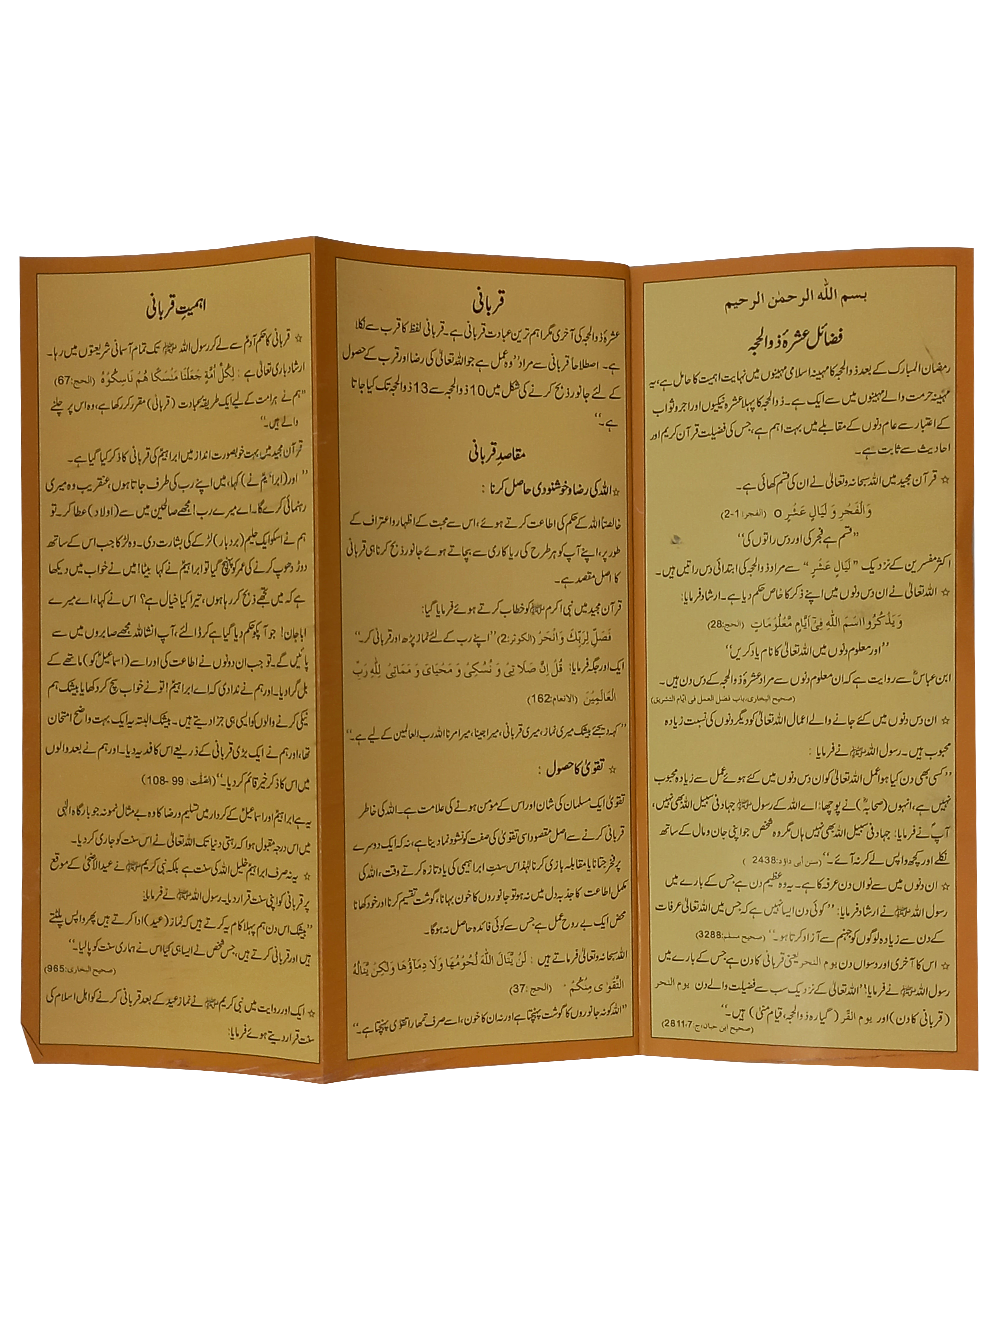 بسم اللّٰہ الرحمٰن الرحیم
فضائل عشرۂ ذوالحجہ
رمضان المبارک کے بعد ذوالحجہ کا مہینہ اسلامی مہینوں میں نہایت اہمیت کا حامل ہے، یہ
مہینہ حرمت والے مہینوں میں سے ایک ہے۔ ذوالحجہ کا پہلا عشرہ نیکیوں اور اجر و ثواب
کے اعتبار سے عام دنوں کے مقابلے میں بہت اہم ہے، جس کی فضیلت قرآن کریم اور
احادیث سے ثابت ہے۔
☆ قرآن مجید میں اللہ سبحانہ وتعالیٰ نے ان کی قسم کھائی ہے۔
وَالْفَجْرِ وَ لَیَالٍ عَشْرٍ o (الفجر:1-2)
”قسم ہے فجر کی اور دس راتوں کی“
اکثر مفسرین کے نزدیک ”لَیَالٍ عَشْرٍ“ سے مراد ذوالحجہ کی ابتدائی دس راتیں ہیں۔
☆ اللہ تعالیٰ نے ان دس دنوں میں اپنے ذکر کا خاص حکم دیا ہے۔ ارشاد فرمایا:
وَیَذْکُرُوا اسْمَ اللّٰہِ فِیْ اَیَّامٍ مَّعْلُوْمَاتٍ (الحج:28)
”اور معلوم دنوں میں اللہ تعالیٰ کا نام یاد کریں“
ابن عباسؓ سے روایت ہے کہ ان معلوم دنوں سے مراد عشرۂ ذوالحجہ کے دس دن ہیں۔
(صحیح البخاری،باب فضل العمل فی ایّام التشریق)
☆ ان دس دنوں میں کئے جانے والے اعمال اللہ تعالیٰ کو دیگر دنوں کی نسبت زیادہ
محبوب ہیں۔ رسول اللہ ﷺ نے فرمایا :
”کسی بھی دن کیا ہوا عمل اللہ تعالیٰ کو ان دس دنوں میں کئے ہوئے عمل سے زیادہ محبوب
نہیں ہے، انہوں (صحابہؓ) نے پوچھا: اے اللہ کے رسول ﷺ جہاد فی سبیل اللہ بھی نہیں،
آپؐ نے فرمایا: جہاد فی سبیل اللہ بھی نہیں ہاں مگر وہ شخص جو اپنی جان و مال کے ساتھ
نکلے اور کچھ واپس لے کر نہ آئے۔“ (سنن ابی داؤد:2438)
☆ ان دنوں میں سے نواں دن عرفہ کا ہے۔ یہ وہ عظیم دن ہے جس کے بارے میں
رسول اللہ ﷺ نے ارشاد فرمایا: ”کوئی دن ایسا نہیں ہے کہ جس میں اللہ تعالیٰ عرفات
کے دن سے زیادہ لوگوں کو جہنم سے آزاد کرتا ہو۔“ (صحیح مسلم:3288)
☆ اس کا آخری اور دسواں دن یوم النحر یعنی قربانی کا دن ہے جس کے بارے میں
رسول اللہ ﷺ نے فرمایا: ”اللہ تعالیٰ کے نزدیک سب سے فضیلت والے دن یوم النحر
(قربانی کا دن) اور یوم القّر (گیارہ ذوالحجہ، قیام منیٰ) ہیں۔“
(صحیح ابن حبان،ج7:2811)
قربانی
عشرۂ ذوالحجہ کی آخری مگر اہم ترین عبادت قربانی ہے۔ قربانی لفظ کا قرب سے نکلا
ہے۔ اصطلاحاً قربانی سے مراد ”وہ عمل ہے جو اللہ تعالیٰ کی رضا اور قرب کے حصول
کے لئے جانور ذبح کرنے کی شکل میں 10 ذوالحجہ سے 13 ذوالحجہ تک کیا جاتا
ہے۔“
مقاصدِ قربانی
☆ اللہ کی رضا و خوشنودی حاصل کرنا :
خالصتاً اللہ کے حکم کی اطاعت کرتے ہوئے، اس سے محبت کے اظہار و اعتراف کے
طور پر، اپنے آپ کو ہر طرح کی ریاکاری سے بچاتے ہوئے جانور ذبح کرنا ہی قربانی
کا اصل مقصد ہے۔
قرآن مجید میں نبی اکرم ﷺ کو خطاب کرتے ہوئے فرمایا گیا:
فَصَلِّ لِرَبِّكَ وَانْحَرْ (الکوثر:2) ”اپنے رب کے لئے نماز پڑھ اور قربانی کر۔“
ایک اور جگہ فرمایا: قُلْ اِنَّ صَلَاتِیْ وَ نُسُکِیْ وَ مَحْیَایَ وَ مَمَاتِیْ لِلّٰہِ رَبِّ
الْعَالَمِیْنَ (الانعام:162)
”کہہ دیجئے بیشک میری نماز، میری قربانی، میرا جینا، میرا مرنا اللہ رب العالمین کے لیے ہے۔“
☆ تقویٰ کا حصول :
تقویٰ ایک مسلمان کی شان اور اس کے مؤمن ہونے کی علامت ہے۔ اللہ کی خاطر
قربانی کرنے سے اصل مقصود اسی تقویٰ کی صفت کو نشوونما دینا ہے، نہ کہ ایک دوسرے
پر فخر جتانا یا مقابلہ بازی کرنا لہٰذا اس سنتِ ابراہیمی کی یاد تازہ کرتے وقت، اللہ کی
مکمل اطاعت کا جذبہ دل میں نہ ہو تو جانوروں کا خون بہانا، گوشت تقسیم کرنا اور خود کھانا
محض ایک بے روح عمل ہے جس سے کوئی فائدہ حاصل نہ ہوگا۔
اللہ سبحانہ وتعالیٰ فرماتے ہیں : لَنْ یَّنَالَ اللّٰہَ لُحُوْمُهَا وَلَا دِمَآؤُهَا وَلٰکِنْ یَّنَالُهُ
التَّقْوٰی مِنْکُمْ (الحج:37)
”اللہ کو نہ جانوروں کا گوشت پہنچتا ہے اور نہ ان کا خون، اسے صرف تمھارا تقویٰ پہنچتا ہے۔“
اہمیتِ قربانی
☆ قربانی کا حکم آدمؑ سے لے کر رسول اللہ ﷺ تک تمام آسمانی شریعتوں میں رہا۔
ارشاد باری تعالیٰ ہے : لِکُلِّ اُمَّةٍ جَعَلْنَا مَنْسَکًا هُمْ نَاسِکُوْهُ (الحج:67)
”ہم نے ہر امت کے لیے ایک طریقۂ عبادت (قربانی) مقرر کر رکھا ہے، وہ اس پر چلنے
والے ہیں۔“
قرآن مجید میں بہت خوبصورت انداز میں ابراہیمؑ کی قربانی کا ذکر کیا گیا ہے۔
”اور (ابراہیمؑ نے) کہا، میں اپنے رب کی طرف جاتا ہوں، عنقریب وہ میری
رہنمائی کرے گا۔ اے میرے رب! مجھے صالحین میں سے (اولاد) عطا کر۔ تو
ہم نے اسکو ایک حلیم (بردبار) لڑکے کی بشارت دی۔ وہ لڑکا جب اس کے ساتھ
دوڑ دھوپ کرنے کی عمر کو پہنچ گیا تو ابراہیمؑ نے کہا بیٹا! میں نے خواب میں دیکھا
ہے کہ میں تجھے ذبح کر رہا ہوں، تیرا کیا خیال ہے؟ اس نے کہا، اے میرے
ابا جان! جو آپکو حکم دیا گیا ہے کر ڈالئے، آپ انشاءاللہ مجھے صابروں میں سے
پائیں گے۔ تو جب ان دونوں نے اطاعت کی اور اسے (اسماعیلؑ کو) ماتھے کے
بل گرا دیا۔ اور ہم نے ندا دی کہ اے ابراہیمؑ! تو نے خواب سچ کر دکھایا بیشک ہم
نیکی کرنے والوں کو ایسی ہی جزا دیتے ہیں۔ بیشک البتہ یہ ایک بہت واضح امتحان
تھا، اور ہم نے ایک بڑی قربانی کے ذریعے اس کا فدیہ دیا۔ اور ہم نے بعد والوں
میں اس کا ذکرِ خیر قائم کر دیا۔“ (الصّٰفّٰت: 99-108)
یہ ہے ابراہیمؑ اور اسماعیلؑ کے کردار میں تسلیم و رضا کا وہ بے مثال نمونہ جو بارگاہ الٰہی
میں اس درجہ مقبول ہوا کہ رہتی دنیا تک اللہ تعالیٰ نے اس سنت کو جاری کر دیا۔
☆ یہ نہ صرف ابراہیمؑ خلیل اللہ کی سنت ہے بلکہ نبی کریم ﷺ نے عیدالاضحیٰ کے موقع
پر قربانی کو اپنی سنت قرار دیا۔ رسول اللہ ﷺ نے فرمایا:
”بیشک اس دن ہم پہلا کام یہ کرتے ہیں کہ نماز (عید) ادا کرتے ہیں پھر واپس پلٹتے
ہیں اور قربانی کرتے ہیں، جس شخص نے ایسا ہی کیا اس نے ہماری سنت کو پا لیا۔“
(صحیح البخاری:965)
☆ ایک اور روایت میں نبی کریم ﷺ نے نماز عید کے بعد قربانی کرنے کو اہل اسلام کی
سنت قرار دیتے ہوئے فرمایا: